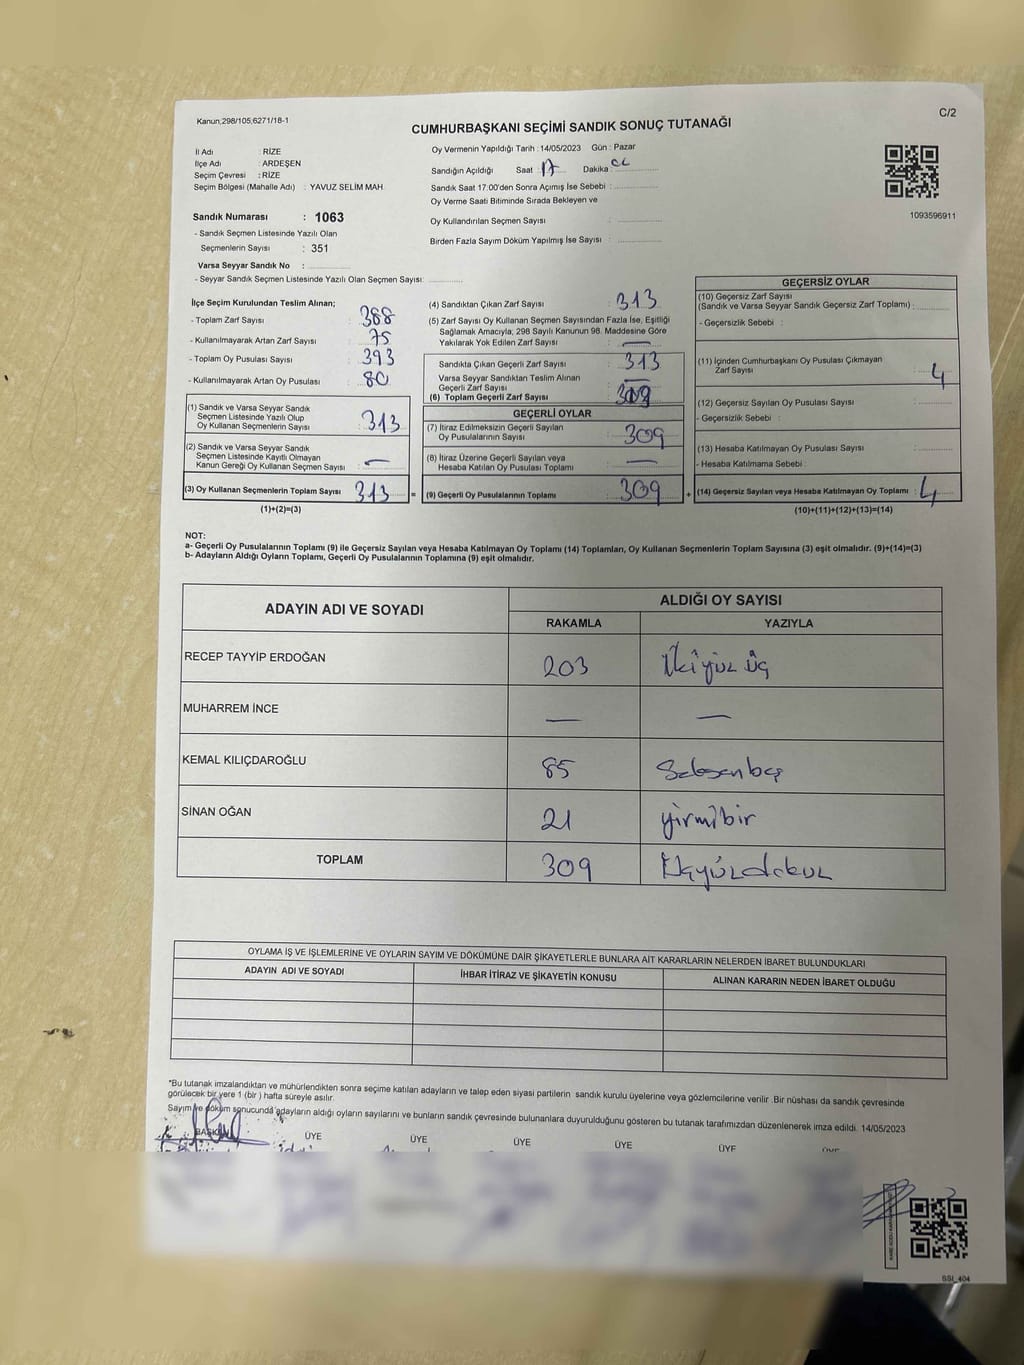 Kanun,298/105,6271/18-1
C/2
CUMHURBAŞKANI SEÇİMİ SANDIK SONUÇ TUTANAĞI
İl Adı : RİZE
İlçe Adı : ARDEŞEN
Seçim Çevresi : RİZE
Seçim Bölgesi (Mahalle Adı) : YAVUZ SELİM MAH.
Sandık Numarası : 1063
- Sandık Seçmen Listesinde Yazılı Olan
Seçmenlerin Sayısı : 351
Varsa Seyyar Sandık No :
- Seyyar Sandık Seçmen Listesinde Yazılı Olan Seçmen Sayısı:
Oy Vermenin Yapıldığı Tarih :14/05/2023 Gün : Pazar
Sandığın Açıldığı Saat 17 Dakika
Sandık Saat 17:00'den Sonra Açımış İse Sebebi :
Oy Verme Saati Bitiminde Sırada Bekleyen ve
Oy Kullandırılan Seçmen Sayısı :
Birden Fazla Sayım Döküm Yapılmış İse Sayısı :
1093596911
İlçe Seçim Kurulundan Teslim Alınan;
- Toplam Zarf Sayısı : 388
- Kullanılmayarak Artan Zarf Sayısı : 75
- Toplam Oy Pusulası Sayısı : 393
- Kullanılmayarak Artan Oy Pusulası : 80
(1) Sandık ve Varsa Seyyar Sandık
Seçmen Listesinde Yazılı Olup
Oy Kullanan Seçmenlerin Sayısı : 313
(2) Sandık ve Varsa Seyyar Sandık
Seçmen Listesinde Kayıtlı Olmayan
Kanun Gereği Oy Kullanan Seçmen Sayısı : —
(3) Oy Kullanan Seçmenlerin Toplam Sayısı : 313 =
(1)+(2)=(3)
(4) Sandıktan Çıkan Zarf Sayısı : 313
(5) Zarf Sayısı Oy Kullanan Seçmen Sayısından Fazla İse, Eşitliği
Sağlamak Amacıyla; 298 Sayılı Kanunun 98. Maddesine Göre
Yakılarak Yok Edilen Zarf Sayısı : —
Sandıkta Çıkan Geçerli Zarf Sayısı : 313
Varsa Seyyar Sandıktan Teslim Alınan
Geçerli Zarf Sayısı : —
(6) Toplam Geçerli Zarf Sayısı : 309
GEÇERLİ OYLAR
(7) İtiraz Edilmeksizin Geçerli Sayılan
Oy Pusulalarının Sayısı : 309
(8) İtiraz Üzerine Geçerli Sayılan veya
Hesaba Katılan Oy Pusulası Toplamı : —
(9) Geçerli Oy Pusulalarının Toplamı : 309 +
GEÇERSİZ OYLAR
(10) Geçersiz Zarf Sayısı
(Sandık ve Varsa Seyyar Sandık Geçersiz Zarf Toplamı) :
- Geçersizlik Sebebi :
(11) İçinden Cumhurbaşkanı Oy Pusulası Çıkmayan
Zarf Sayısı : 4
(12) Geçersiz Sayılan Oy Pusulası Sayısı :
- Geçersizlik Sebebi :
(13) Hesaba Katılmayan Oy Pusulası Sayısı :
- Hesaba Katılmama Sebebi :
(14) Geçersiz Sayılan veya Hesaba Katılmayan Oy Toplamı : 4
(10)+(11)+(12)+(13)=(14)
NOT:
a- Geçerli Oy Pusulalarının Toplamı (9) ile Geçersiz Sayılan veya Hesaba Katılmayan Oy Toplamı (14) Toplamları, Oy Kullanan Seçmenlerin Toplam Sayısına (3) eşit olmalıdır. (9)+(14)=(3)
b- Adayların Aldığı Oyların Toplamı, Geçerli Oy Pusulalarının Toplamına (9) eşit olmalıdır.
ADAYIN ADI VE SOYADI
ALDIĞI OY SAYISI
RAKAMLA YAZIYLA
RECEP TAYYİP ERDOĞAN 203 İkiyüz üç
MUHARREM İNCE — —
KEMAL KILIÇDAROĞLU 85 Seksenbeş
SİNAN OĞAN 21 yirmibir
TOPLAM 309 Üçyüzdokuz
OYLAMA İŞ VE İŞLEMLERİNE VE OYLARIN SAYIM VE DÖKÜMÜNE DAİR ŞİKAYETLERLE BUNLARA AİT KARARLARIN NELERDEN İBARET BULUNDUKLARI
ADAYIN ADI VE SOYADI İHBAR İTİRAZ VE ŞİKAYETİN KONUSU ALINAN KARARIN NEDEN İBARET OLDUĞU
*Bu tutanak imzalandıktan ve mühürlendikten sonra seçime katılan adayların ve talep eden siyasi partilerin sandık kurulu üyelerine veya gözlemcilerine verilir .Bir nüshası da sandık çevresinde
görülecek bir yere 1 (bir ) hafta süreyle asılır.
Sayım ve döküm sonucunda adayların aldığı oyların sayılarını ve bunların sandık çevresinde bulunanlara duyurulduğunu gösteren bu tutanak tarafımızdan düzenlenerek imza edildi. 14/05/2023
BAŞKAN ÜYE ÜYE ÜYE ÜYE ÜYE ÜYE
SSI_404